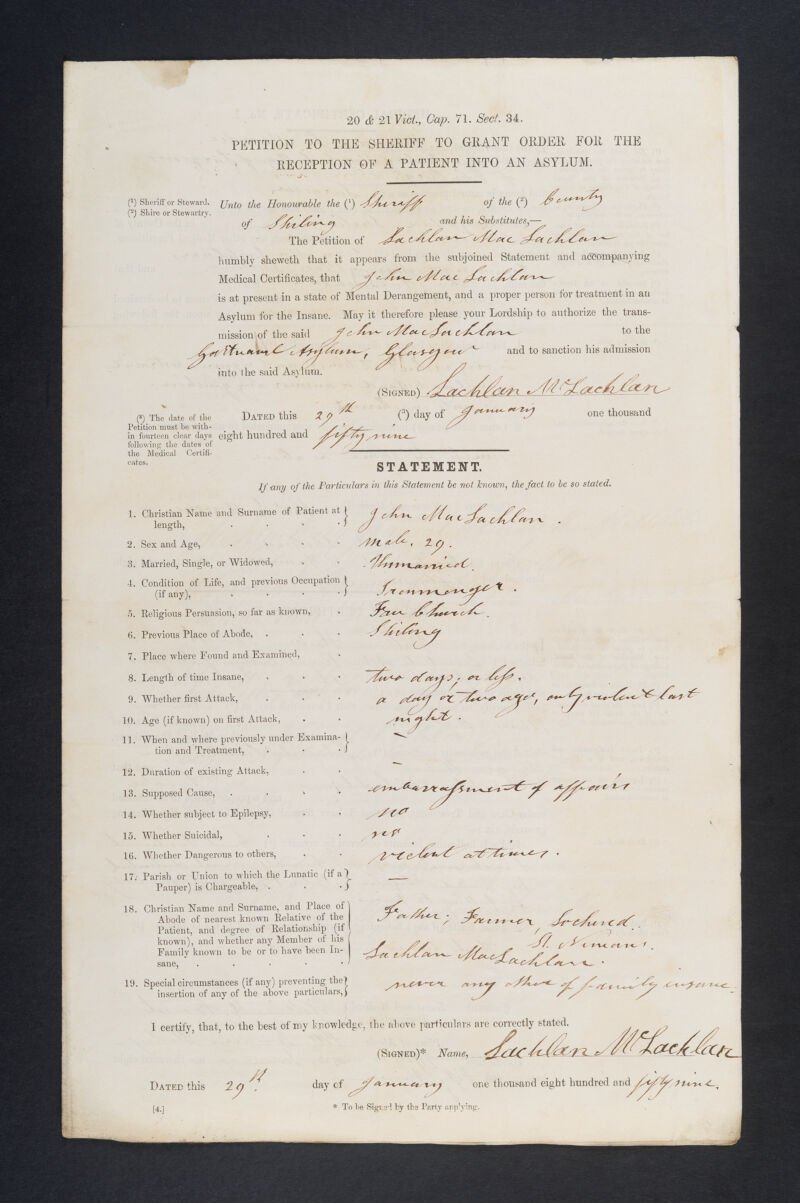 20 & 21 Vict., Cap. 71. Sect. 34.
PETITION TO THE SHERIFF TO GRANT ORDER FOR THE
RECEPTION OF A PATIENT INTO AN ASYLUM.
(¹) Sheriff or Steward.
(²) Shire or Stewartry.
Unto the Honourable the (¹) Sheriff of the (²) County
of Stirling and his Substitutes,—
The Petition of Lachlan MacLachlan
humbly sheweth that it appears from the subjoined Statement and accompanying
Medical Certificates, that John MacLachlan
is at present in a state of Mental Derangement, and a proper person for treatment in an
Asylum for the Insane. May it therefore please your Lordship to authorize the trans-
mission of the said John MacLachlan to the
Gartnavel Asylum, Glasgow and to sanction his admission
into the said Asylum.
(SIGNED) Lachlan McLachlan
(³) The date of the
Petition must be with-
in fourteen clear days
following the dates of
the Medical Certifi-
cates.
DATED this 29th (³) day of January one thousand
eight hundred and fifty nine
STATEMENT.
If any of the Particulars in this Statement be not known, the fact to be so stated.
1. Christian Name and Surname of Patient at length, John MacLachlan.
2. Sex and Age, Male. 29.
3. Married, Single, or Widowed, Unmarried.
4. Condition of Life, and previous Occupation (if any), Ironmonger.
5. Religious Persuasion, so far as known, Free Church.
6. Previous Place of Abode, Stirling
7. Place where Found and Examined,
8. Length of time Insane, two days, or less.
9. Whether first Attack, a day or two ago, only violent last
10. Age (if known) on first Attack, night.
11. When and where previously under Examina-tion and Treatment, —
12. Duration of existing Attack, —
13. Supposed Cause, embarrassment of affairs
14. Whether subject to Epilepsy, no
15. Whether Suicidal, no
16. Whether Dangerous to others, violent at times.
17. Parish or Union to which the Lunatic (if a Pauper) is Chargeable, —
18. Christian Name and Surname, and Place of
Abode of nearest known Relative of the
Patient, and degree of Relationship (if
known), and whether any Member of his
Family known to be or to have been In-
sane,
Father; Farmer,
St. Ninians.
Lachlan MacLachlan.
19. Special circumstances (if any) preventing the insertion of any of the above particulars, never any other of family insane.
I certify, that, to the best of my knowledge, the above particulars are correctly stated.
(SIGNED)* Name, Lachlan McLachlan
DATED this 29th. day of January one thousand eight hundred and fifty nine.
[4.] * To be Signed by the Party applying.